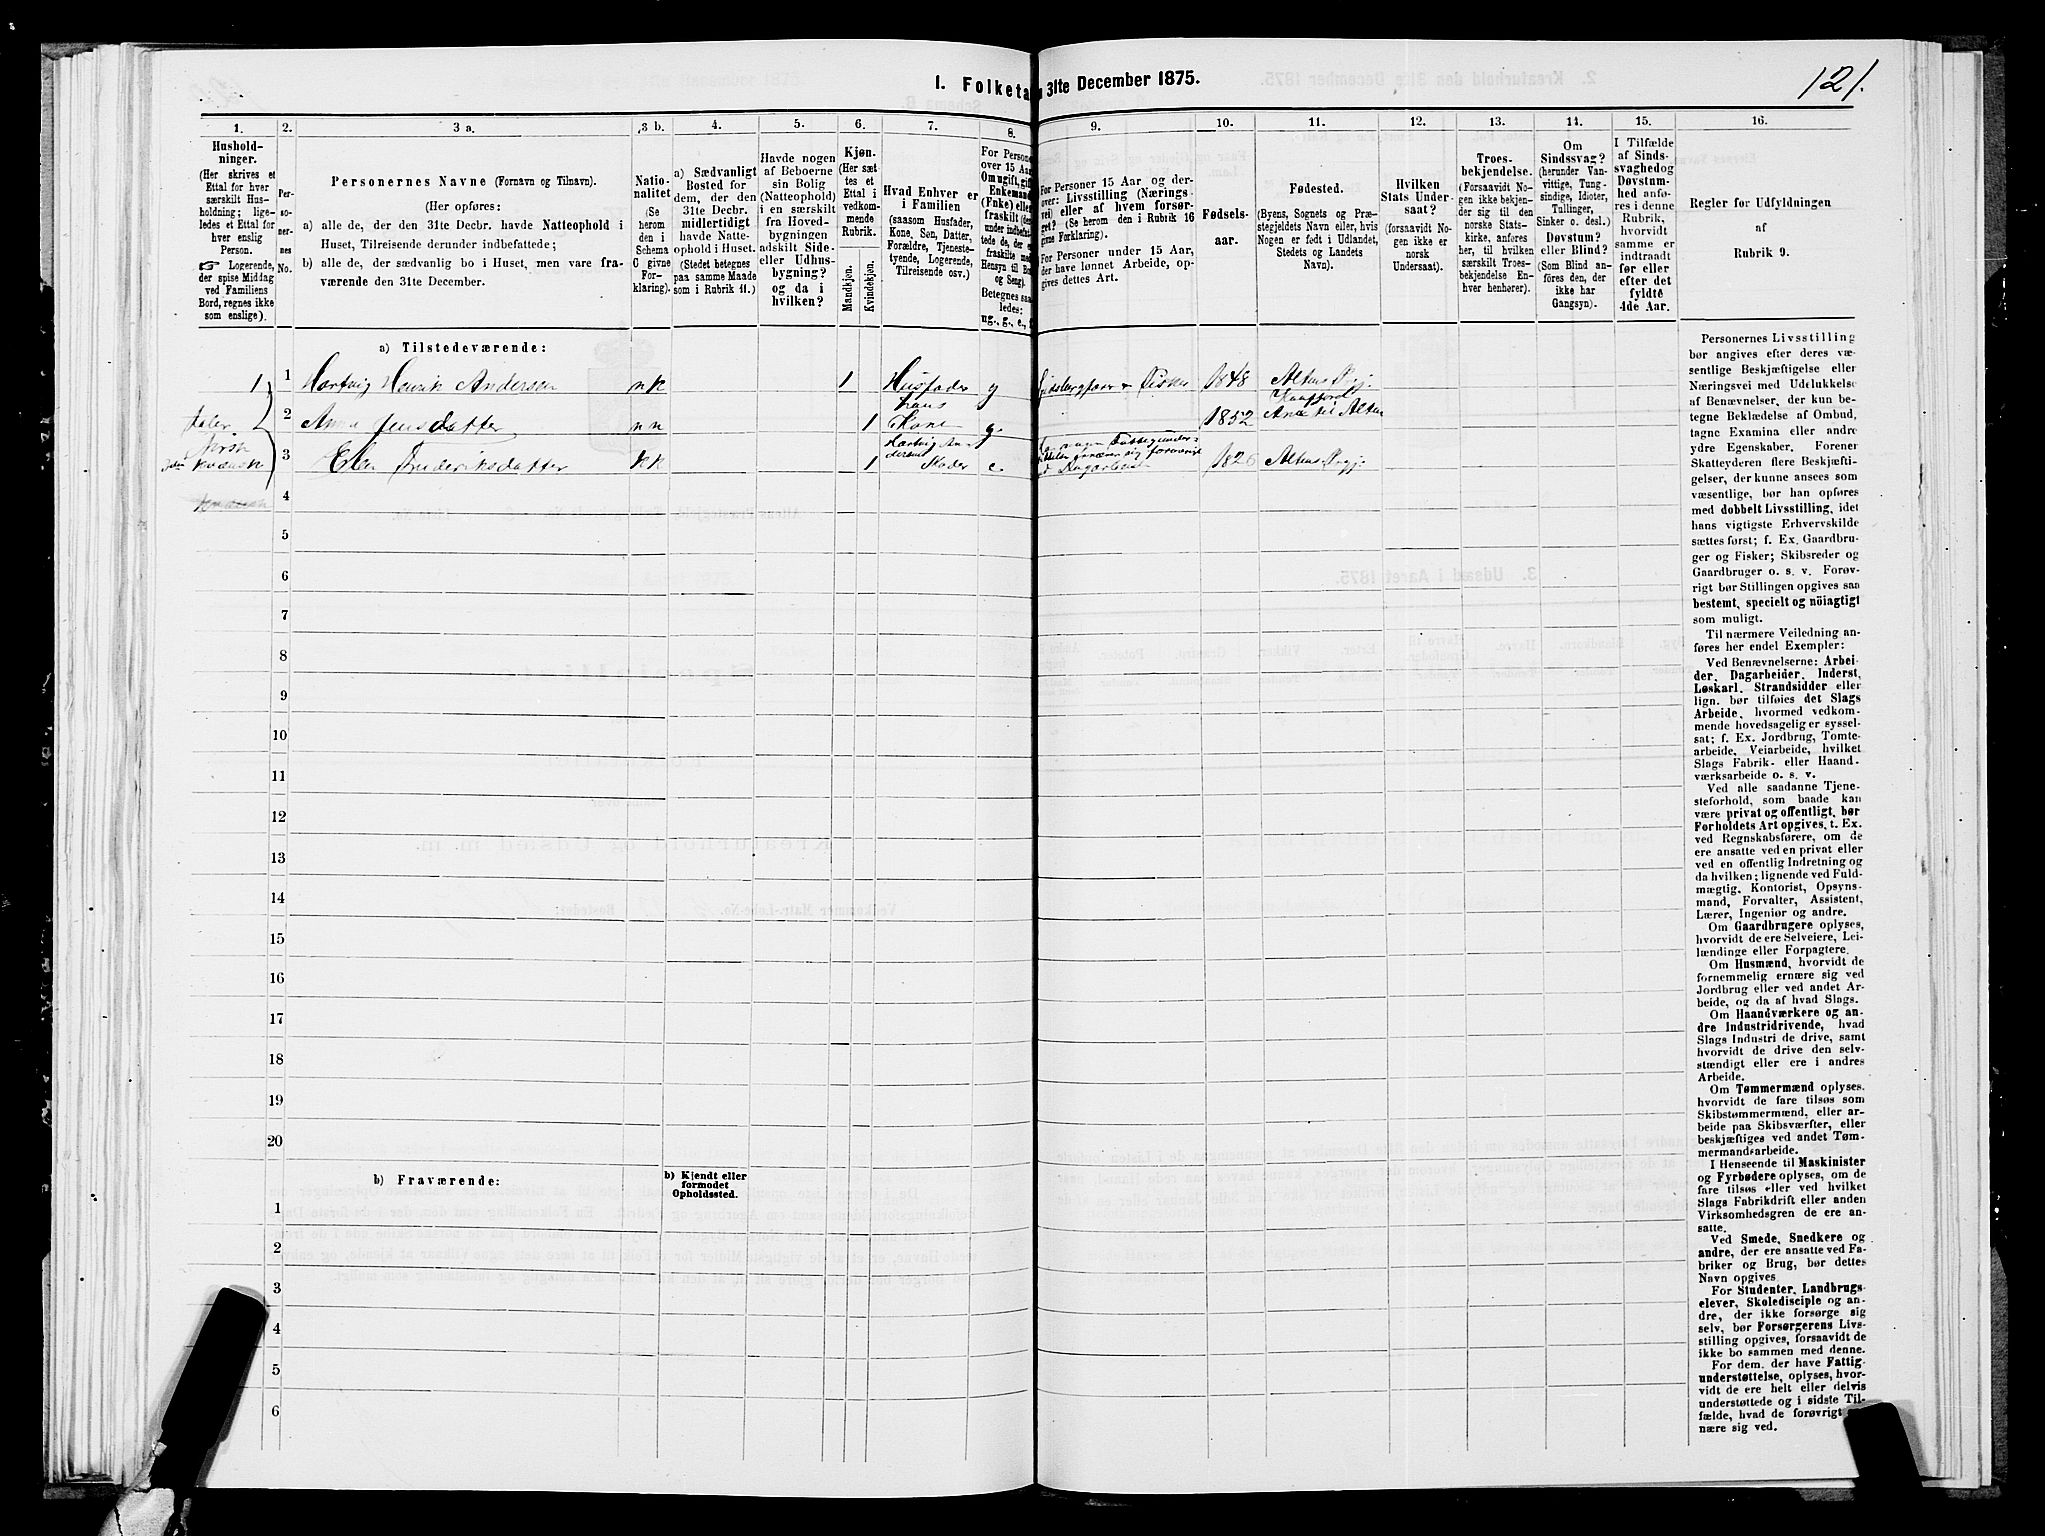 I. Folketa
31te December 1875.
121.
1.
Hushold-
ninger.
(Her skrives et
Ettal for hver
særskilt Hus-
holdning; lige-
ledes et Ettal for
hver enslig
Person.
☞ Logerende,
der spise Middag
ved Familiens
Bord, regnes ikke
som enslige).
2.
Per-
so-
ner-
nes
No.
3 a.
Personernes Navne (Fornavn og Tilnavn).
(Her opføres:
a) alle de, der den 31te Decbr. havde Natteophold i
Huset, Tilreisende derunder indbefattede;
b) alle de, der sædvanlig bo i Huset, men vare fra-
værende den 31te December.
3 b.
Natio-
nalitet
(Se
herom
den i
Schema
C givne
For-
klaring).
4.
a) Sædvanligt
Bosted for
dem, der den
31te Decbr.
midlertidigt
havde Natte-
ophold i Huset.
(Stedet betegnes
paa samme Maade
som i Rubrik 11.)
5.
Havde nogen
af Beboerne
sin Bolig
(Natteophold)
i en særskilt
fra Hoved-
bygningen
adskilt Side-
eller Udhus-
bygning?
og da i
hvilken?
6.
Kjøn.
(Her sæt-
tes et
Ettal i
vedkom-
mende
Rubrik.
Mandkjøn.
Kvindekjøn.
7.
Hvad Enhver er
i Familien
(saasom Husfader,
Kone, Søn, Datter,
Forældre, Tjeneste-
tyende, Logerende,
Tilreisende osv.)
8.
For Personer
over 15 Aar:
Om ugift, gift,
Enkemand
(Enke) eller
fraskilt
Betegnes saa-
ledes:
ug., g., e.,
9.
For Personer 15 Aar og der-
over: Livsstilling (Nærings-
vei) eller af hvem forsør-
get? (Se herom den i Rubrik 16
givne Forklaring).
For Personer under 15 Aar,
der have lønnet Arbeide, op-
gives dettes Art.
10.
Fødsels-
aar.
11.
Fødested.
(Byens, Sognets og Præ-
stegjeldets Navn eller, hvis
Nogen er født i Udlandet,
Stedets og Landets
Navn).
12.
Hvilken
Stats Under-
saat?
(forsaavidt No-
gen ikke er
norsk
Undersaat).
13.
Troes-
bekjendelse.
(Forsaavidt No-
gen ikke bekjen-
der sig til den
norske Stats-
kirke, anføres
her, til hvilken
særskilt Troes-
bekjendelse En-
hver henhører).
14.
Om
Sindssvag?
(herunder Van-
vittige, Tung-
sindige, Idioter,
Tullinger,
Sinker o. desl.)
Døvstum?
eller Blind?
(Som Blind an-
føres den, der
ikke har
Gangsyn).
15.
I Tilfælde
af Sinds-
svaghed og
Døvstum-
hed anfø-
res i denne
Rubrik,
hvorvidt
samme er
indtraadt
før eller
efter det
fyldte
4de Aar.
16.
Regler for Udfyldningen
af
Rubrik 9.
a) Tilstedeværende:
1 1 Hartvig Henrik Andersen n k 1 Husfader g 1848 Altens Prgj.
Kaafjord
2 Anna Jensdatter n n hans Kone 1 g. 1852 Alten
taler norsk kvænsk
3 Elen Frederiksdatter k k 1 Hartvig An-
dersens Moder e. 1826 Altens Prgj.
4
5
6
7
8
9
10
11
12
13
14
15
16
17
18
19
20
b) Fraværende:
b) Kjendt eller
formodet
Opholdssted.
1
2
3
4
5
6
Personernes Livsstilling
bør angives efter deres væ-
sentlige Beskjæftigelse eller
Næringsvei med Udelukkelse
af Benævnelser, der kun be-
tegne Beklædelse af Ombud,
tagne Examina eller andre
ydre Egenskaber. Forener
Skatteyderen flere Beskjæfti-
gelser, der kunne ansees som
væsentlige, bør han opføres
med dobbelt Livsstilling, idet
hans vigtigste Erhvervskilde
sættes først; f. Ex. Gaardbru-
ger og Fisker; Skibsreder og
Gaardbruger o. s. v. Forøv-
rigt bør Stillingen opgives saa
bestemt, specielt og nöiagtigt
som muligt.
Til nærmere Veiledning an-
føres her endel Exempler:
Ved Benævnelserne: Arbei-
der, Dagarbeider, Inderst,
Løskarl, Strandsidder eller
lign. bør tilføies det Slags
Arbeide, hvormed vedkom-
mende hovedsagelig er syssel-
sat; f. Ex. Jordbrug, Tomte-
arbeide, Veiarbeide, hvilket
Slags Fabrik- eller Haand-
værksarbeide o. s. v.
Ved alle saadanne Tjene-
steforhold, som baade kan
være privat og offentligt, bør
Forholdets Art opgives, t. Ex.
ved Regnskabsførere, om de
ere ansatte ved en privat eller
ved en offentlig Indretning og
da hvilken; lignende ved Fuld-
mægtig, Kontorist, Opsyns-
mand, Forvalter, Assistent,
Lærer, Ingeniør og andre.
Om Gaardbrugere oplyses,
hvorvidt de ere Selveiere, Lei-
lændinge eller Forpagtere.
Om Husmænd, hvorvidt de
fornemmelig ernære sig ved
Jordbrug eller ved andet Ar-
beide, og da af hvad Slags.
Om Haandværkere og an-
dre Industridrivende, hvad
Slags Industri de drive, samt
hvorvidt de drive den selv-
stændigt eller ere i andres
Arbeide.
Om Tømmermænd oplyses,
hvorvidt de fare tilsøs som
Skibstømmermænd, eller ar-
beide paa Skibsværfter, eller
beskjæftiges ved andet Tøm-
mermandsarbeide.
I Henseende til Maskinister
og Fyrbødere oplyses, om de
fare tilsøs eller ved hvilket
Slags Fabrikdrift eller anden
Virksomhedsgren de ere an-
satte.
Ved Smede, Snedkere og
andre, der ere ansatte ved Fa-
briker og Brug, bør dettes
Navn opgives.
For Studenter, Landbrugs-
elever, Skoledisciple og an-
dre, der ikke forsørge sig
selv, bør Forsørgerens Livs-
stilling opgives, forsaavidt de
ikke bo sammen med denne.
For dem, der have Fattig-
understøttelse, oplyses, hvor-
vidt de ere helt eller delvis
understøttede og i sidste Til-
fælde, hvad de forøvrigt
nære sig ved.